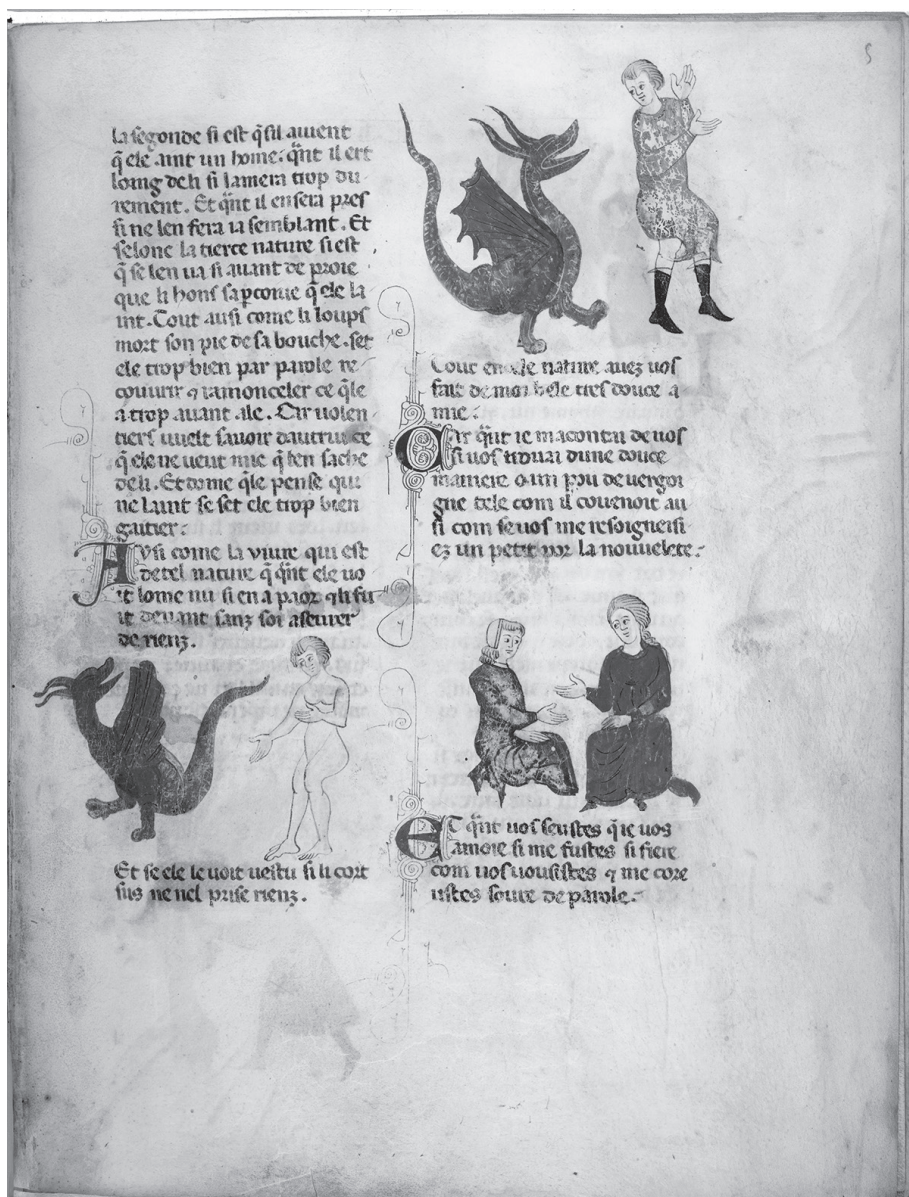 la segonde si est q̄ sil auient
q̄ ele aint un home. q̄nt il ert
loing de li si lamera trop du-
rement. Et q̄nt il en sera pres
si ne len fera ia semblant. Et
selonc la tierce nature si est
q̄ se len ua si auant de proie
que li hons saꝑcoiue q̄ ele la
int. Tout ausi come li loups
mort son pie de sa bouche. set
ele trop bien par parole re-
couurir ⁊ ramonceler ce q̄le
a trop auant ale. Car uolen
tiers uuelt sauoir dautrui ce
q̄ ele ne ueut mie q̄ len sache
de li. Et dome q̄le pense qui
ne laint se set ele trop bien
gaitier.
Ausi come la viure qui est
de tel nature q̄ q̄nt ele uo
it lome nu si en a paor ⁊ li fu
it deuant sanz soi asseurer
de rienz.
Et se ele le uoit uestu si li cort
sus ne nel prise rienz.
5
Tout en tele nature auez uos
fait de moi bele tres douce a
mie.
Car q̄nt ie macointai de uos
si uos trouai dune douce
maniere ⁊ un pou de uergoi
gne tele com il couenoit au
si com se uos me resoigneisi
ez un petit por la nouuelete.
Et q̄nt uos seustes q̄ ie uos
amoie si me fustes si fiere
com uos uousistes ⁊ me core
ustes soure de parole.